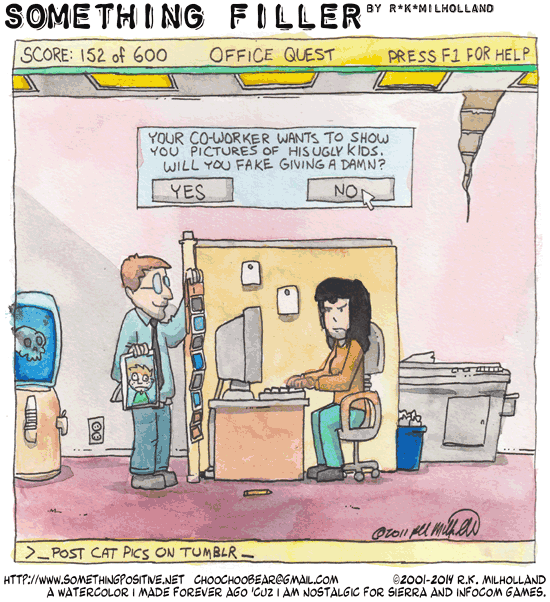 SOMETHING FILLER BY R*K*MILHOLLAND
SCORE: 152 of 600 OFFICE QUEST PRESS F1 FOR HELP
YOUR CO-WORKER WANTS TO SHOW
YOU PICTURES OF HIS UGLY KIDS.
WILL YOU FAKE GIVING A DAMN?
YES NO
©2011
>_POST CAT PICS ON TUMBLR_
HTTP://WWW.SOMETHINGPOSITIVE.NET CHOOCHOOBEAR@GMAIL.COM ©2001-2014 R.K. MILHOLLAND
A WATERCOLOR I MADE FOREVER AGO 'CUZ I AM NOSTALGIC FOR SIERRA AND INFOCOM GAMES.